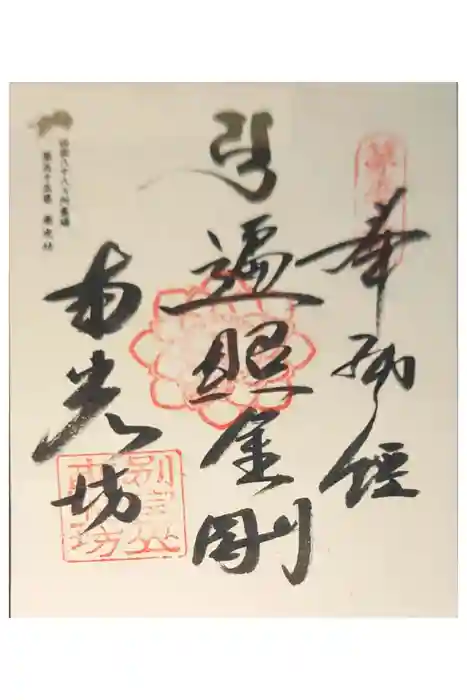 奉納經
遍照金剛
南光坊
別宮山
南光坊
四国八十八ヶ所霊場
第五十五番 南光坊